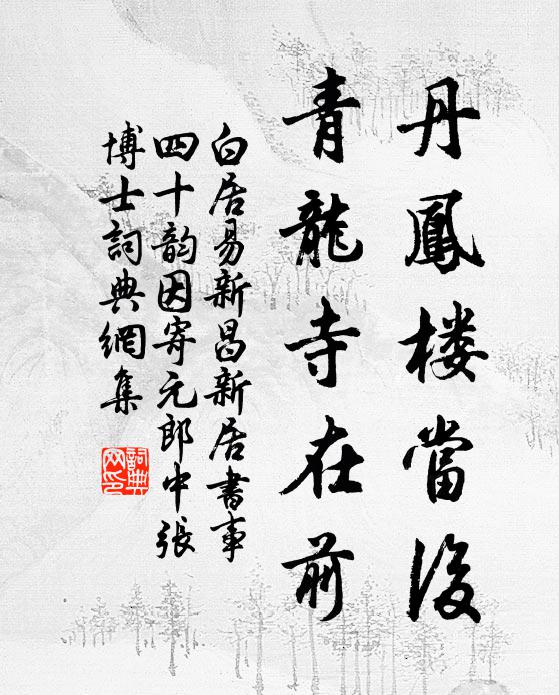 丹鳳楼當後
青龍寺在前
白居易新昌新居書事
四十韵因寄元郎中張
博士詞典網集
詞典
网印